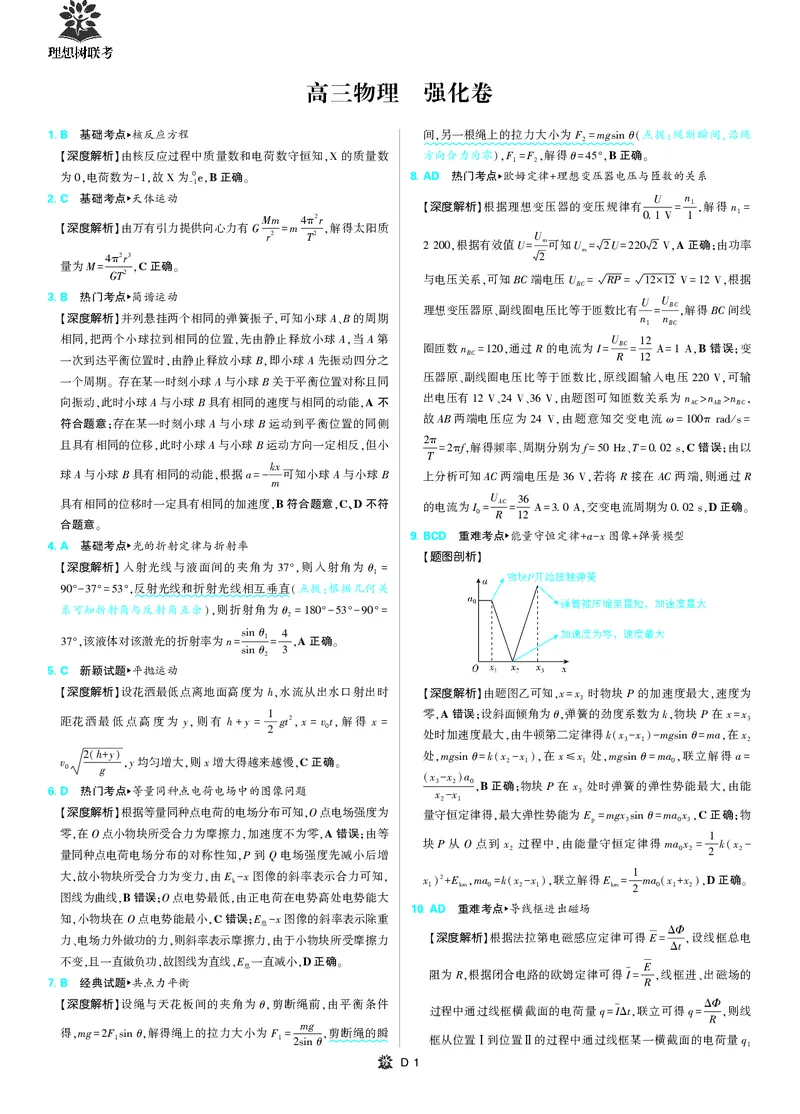 理想树联考
高三物理 强化卷
1. B 基础考点▸核反应方程
【深度解析】由核反应过程中质量数和电荷数守恒知,X 的质量数
为 0,电荷数为-1,故 X 为 ⁰₋₁e,B 正确。
2. C 基础考点▸天体运动
【深度解析】由万有引力提供向心力有 G Mm/r² = m 4π²r/T²,解得太阳质
量为 M= 4π²r³/GT²,C 正确。
3. B 热门考点▸简谐运动
【深度解析】并列悬挂两个相同的弹簧振子,可知小球 A、B 的周期
相同,把两个小球拉到相同的位置,先由静止释放小球 A,当 A 第
一次到达平衡位置时,由静止释放小球 B,即小球 A 先振动四分之
一个周期。存在某一时刻小球 A 与小球 B 关于平衡位置对称且同
向振动,此时小球 A 与小球 B 具有相同的速度与相同的动能,A 不
符合题意;存在某一时刻小球 A 与小球 B 运动到平衡位置的同侧
且具有相同的位移,此时小球 A 与小球 B 运动方向一定相反,但小
球 A 与小球 B 具有相同的动能,根据 a=- kx/m 可知小球 A 与小球 B
具有相同的位移时一定具有相同的加速度,B 符合题意,C、D 不符
合题意。
4. A 基础考点▸光的折射定律与折射率
【深度解析】入射光线与液面间的夹角为 37°,则入射角为 θ₁ =
90°-37°=53°,反射光线和折射光线相互垂直(点拨:根据几何关
系可知折射角与反射角互余),则折射角为 θ₂ = 180°-53°-90°=
37°,该液体对该激光的折射率为 n= sin θ₁/sin θ₂ = 4/3,A 正确。
5. C 新颖试题▸平抛运动
【深度解析】设花洒最低点离地面高度为 h,水流从出水口射出时
距花洒最低点高度为 y,则有 h+y = 1/2 gt²,x = v₀t,解得 x =
v₀ √(2(h+y)/g),y 均匀增大,则 x 增大得越来越慢,C 正确。
6. D 热门考点▸等量同种点电荷电场中的图像问题
【深度解析】根据等量同种点电荷的电场分布可知,O 点电场强度为
零,在 O 点小物块所受合力为摩擦力,加速度不为零,A 错误;由等
量同种点电荷电场分布的对称性知,P 到 Q 电场强度先减小后增
大,故小物块所受合力为变力,由 Eₖ-x 图像的斜率表示合力可知,
图线为曲线,B 错误;O 点电势最低,由正电荷在电势高处电势能大
知,小物块在 O 点电势能最小,C 错误;E总-x 图像的斜率表示除重
力、电场力外做功的力,则斜率表示摩擦力,由于小物块所受摩擦力
不变,且一直做负功,故图线为直线,E总一直减小,D 正确。
7. B 经典试题▸共点力平衡
【深度解析】设绳与天花板间的夹角为 θ,剪断绳前,由平衡条件
得,mg=2F₁sin θ,解得绳上的拉力大小为 F₁= mg/2sin θ,剪断绳的瞬
间,另一根绳上的拉力大小为 F₂=mgsin θ(点拨:绳断瞬间,沿绳
方向合力为零),F₁=F₂,解得 θ=45°,B 正确。
8. AD 热门考点▸欧姆定律+理想变压器电压与匝数的关系
【深度解析】根据理想变压器的变压规律有 U/0.1 V = n₁/1,解得 n₁=
2 200,根据有效值 U= Uₘ/√2 可知 Uₘ=√2U=220√2 V,A 正确;由功率
与电压关系,可知 BC 端电压 U_BC=√RP=√12×12 V=12 V,根据
理想变压器原、副线圈电压比等于匝数比有 U/n₁ = U_BC/n_BC,解得 BC 间线
圈匝数 n_BC=120,通过 R 的电流为 I= U_BC/R = 12/12 A=1 A,B 错误;变
压器原、副线圈电压比等于匝数比,原线圈输入电压 220 V,可输
出电压有 12 V、24 V、36 V,由题图可知匝数关系为 n_AC>n_AB>n_BC,
故 AB 两端电压应为 24 V,由题意知交变电流 ω=100π rad/s=
2π/T =2πf,解得频率、周期分别为 f=50 Hz、T=0.02 s,C 错误;由以
上分析可知 AC 两端电压是 36 V,若将 R 接在 AC 两端,则通过 R
的电流为 I₀= U_AC/R = 36/12 A=3.0 A,交变电流周期为 0.02 s,D 正确。
9. BCD 重难考点▸能量守恒定律+a-x 图像+弹簧模型
【题图剖析】
a
物块P开始接触弹簧
a₀
弹簧被压缩至最短,加速度最大
加速度为零,速度最大
O x₁ x₂ x₃ x
【深度解析】由题图乙可知,x=x₃ 时物块 P 的加速度最大,速度为
零,A 错误;设斜面倾角为 θ,弹簧的劲度系数为 k,物块 P 在 x=x₃
处时加速度最大,由牛顿第二定律得 k(x₃-x₁)-mgsin θ=ma,在 x₂
处,mgsin θ=k(x₂-x₁),在 x≤x₁ 处,mgsin θ=ma₀,联立解得 a=
(x₃-x₂)a₀/x₂-x₁,B 正确;物块 P 在 x₃ 处时弹簧的弹性势能最大,由能
量守恒定律得,最大弹性势能为 Eₚ=mgx₃sin θ=ma₀x₃,C 正确;物
块 P 从 O 点到 x₂ 过程中,由能量守恒定律得 ma₀x₂= 1/2 k(x₂-
x₁)²+Eₖₘ,ma₀=k(x₂-x₁),联立解得 Eₖₘ= 1/2 ma₀(x₁+x₂),D 正确。
10. AD 重难考点▸导线框进出磁场
【深度解析】根据法拉第电磁感应定律可得 E̅= ΔΦ/Δt,设线框总电
阻为 R,根据闭合电路的欧姆定律可得 I̅= E̅/R,线框进、出磁场的
过程中通过线框横截面的电荷量 q=I̅Δt,联立可得 q= ΔΦ/R,则线
框从位置Ⅰ到位置Ⅱ的过程中通过线框某一横截面的电荷量 q₁
D 1